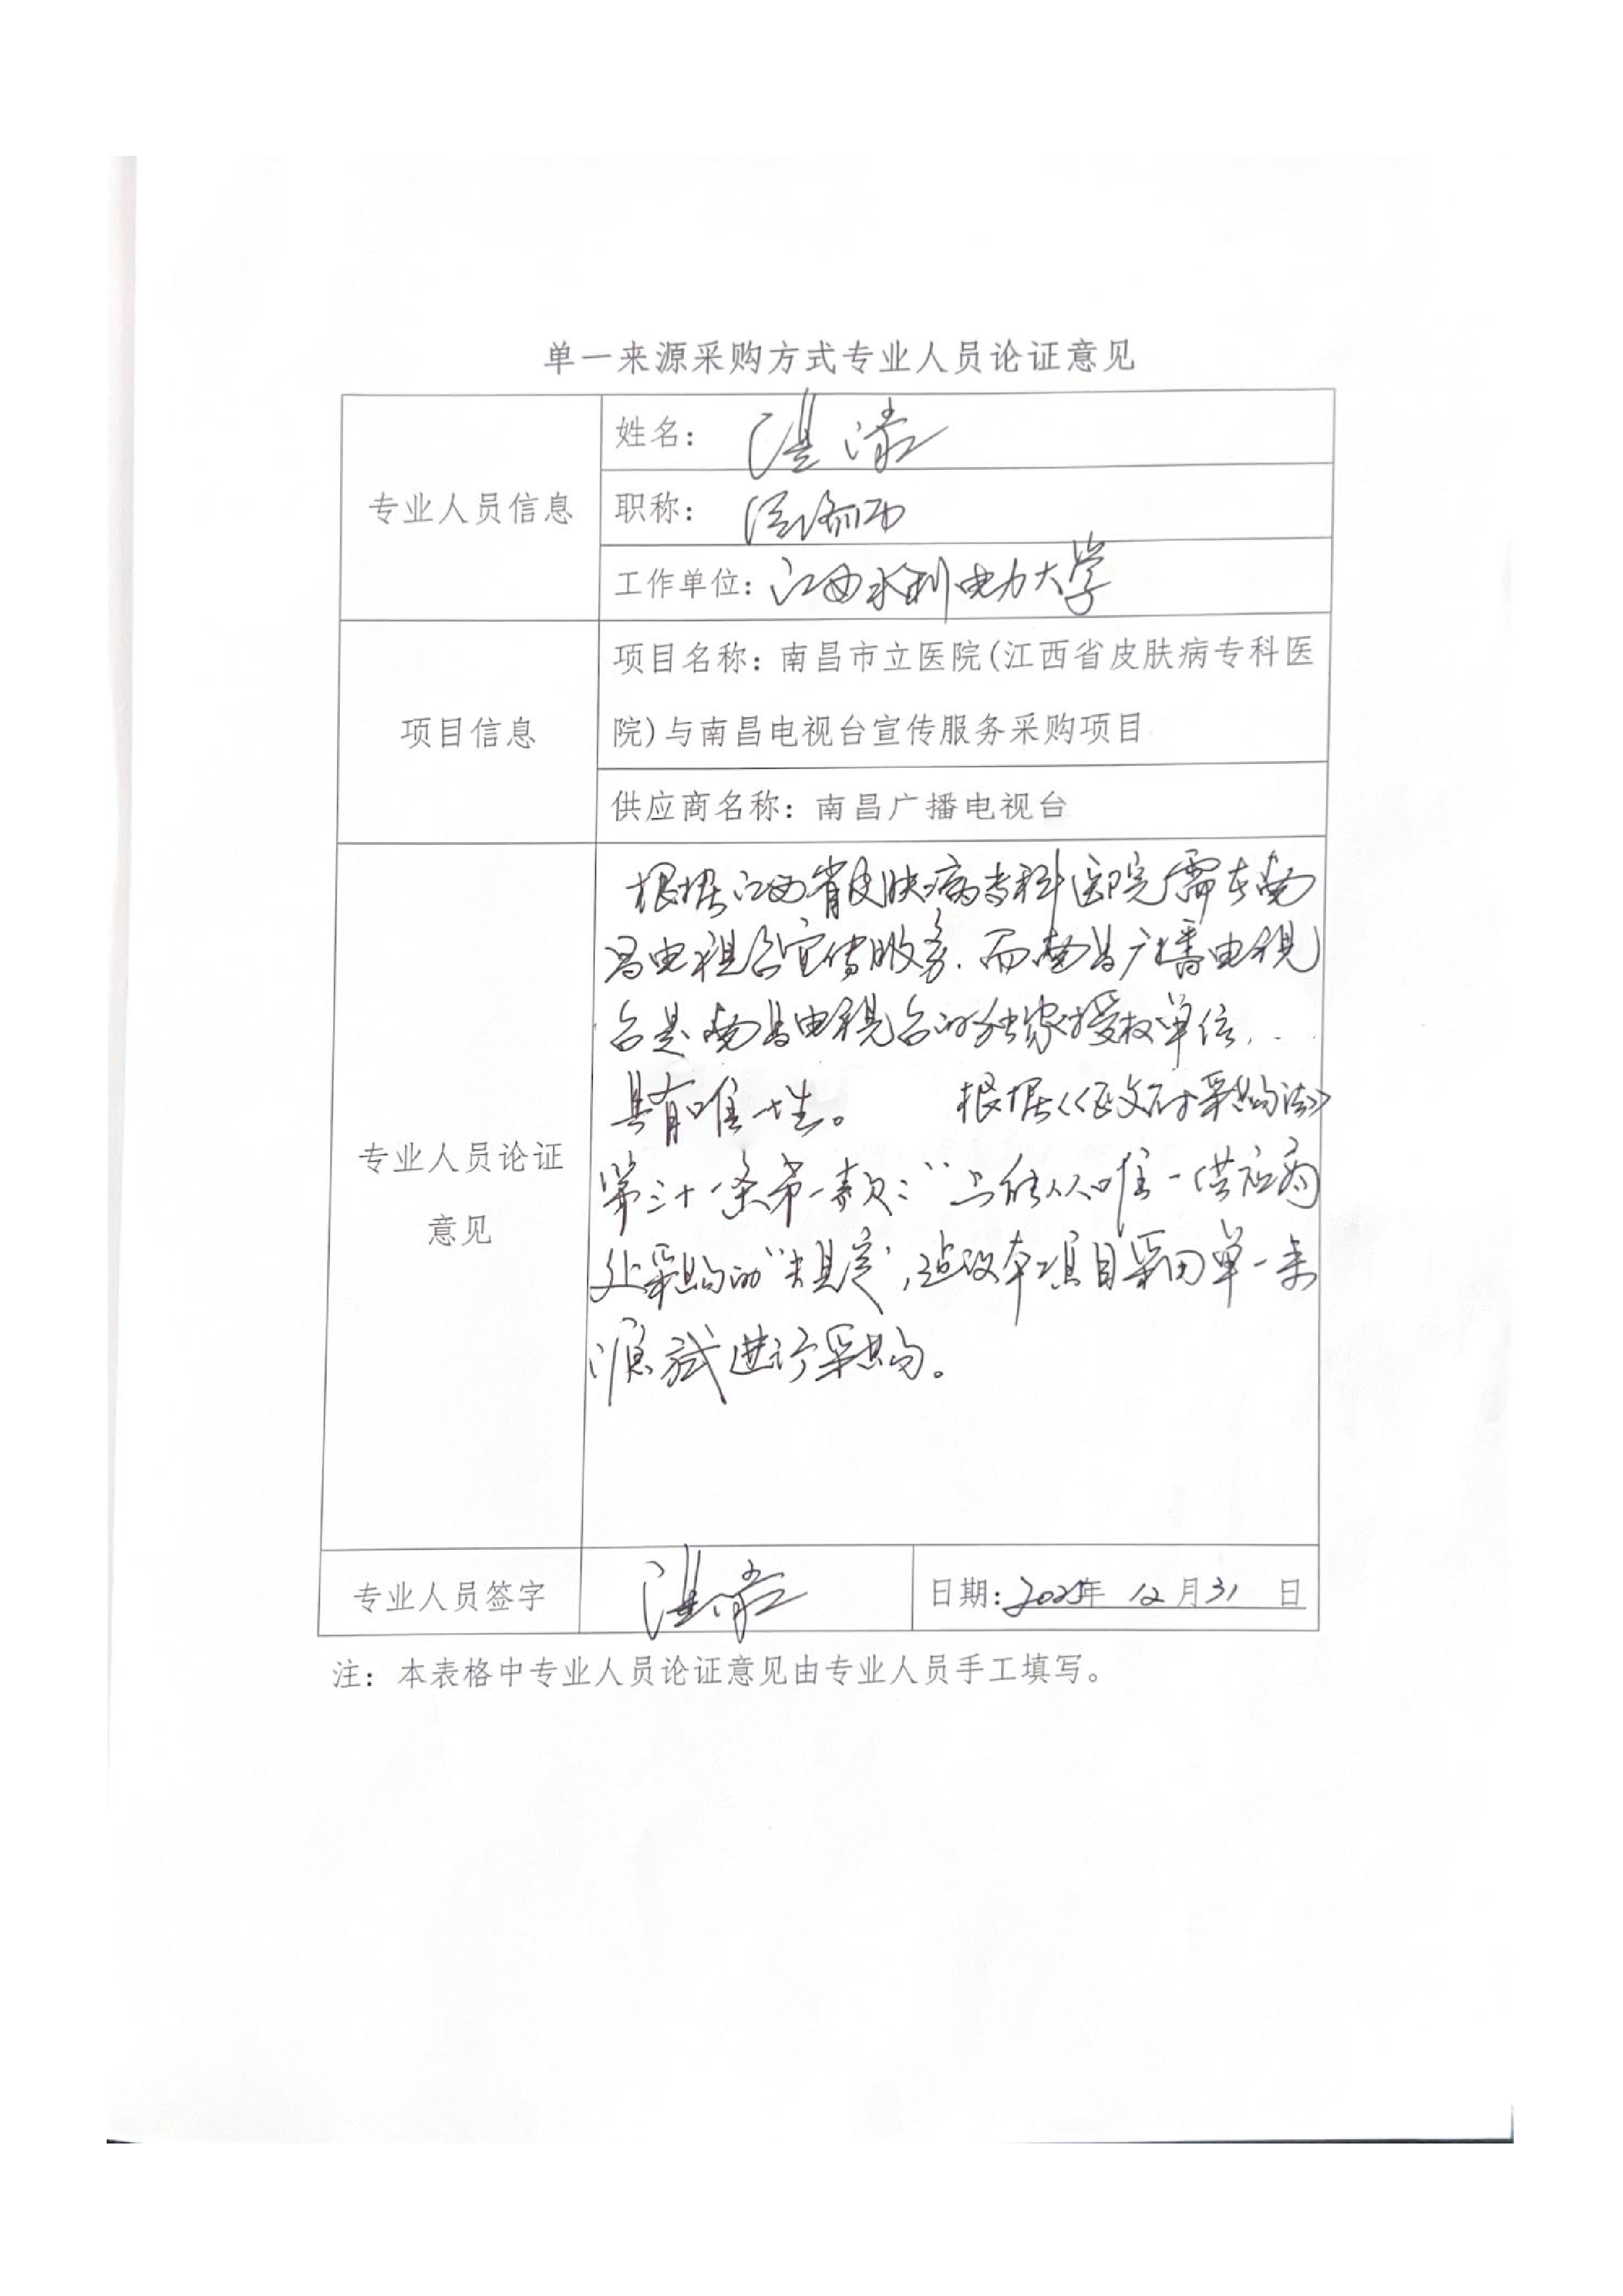 单一来源采购方式专业人员论证意见
专业人员信息
姓名：
职称：经济师
工作单位：江西水利电力大学
项目信息
项目名称：南昌市立医院(江西省皮肤病专科医
院)与南昌电视台宣传服务采购项目
供应商名称：南昌广播电视台
专业人员论证
意见
根据江西省皮肤病专科医院需在南
昌电视台宣传服务，而南昌广播电视
台是南昌电视台的独家授权单位，
具有唯一性。 根据《政府采购法》
第三十一条第一款："只能从唯一供应商
处采购的"规定，建议本项目采用单一来
源方式进行采购。
专业人员签字
日期：2025年 12月31 日
注：本表格中专业人员论证意见由专业人员手工填写。